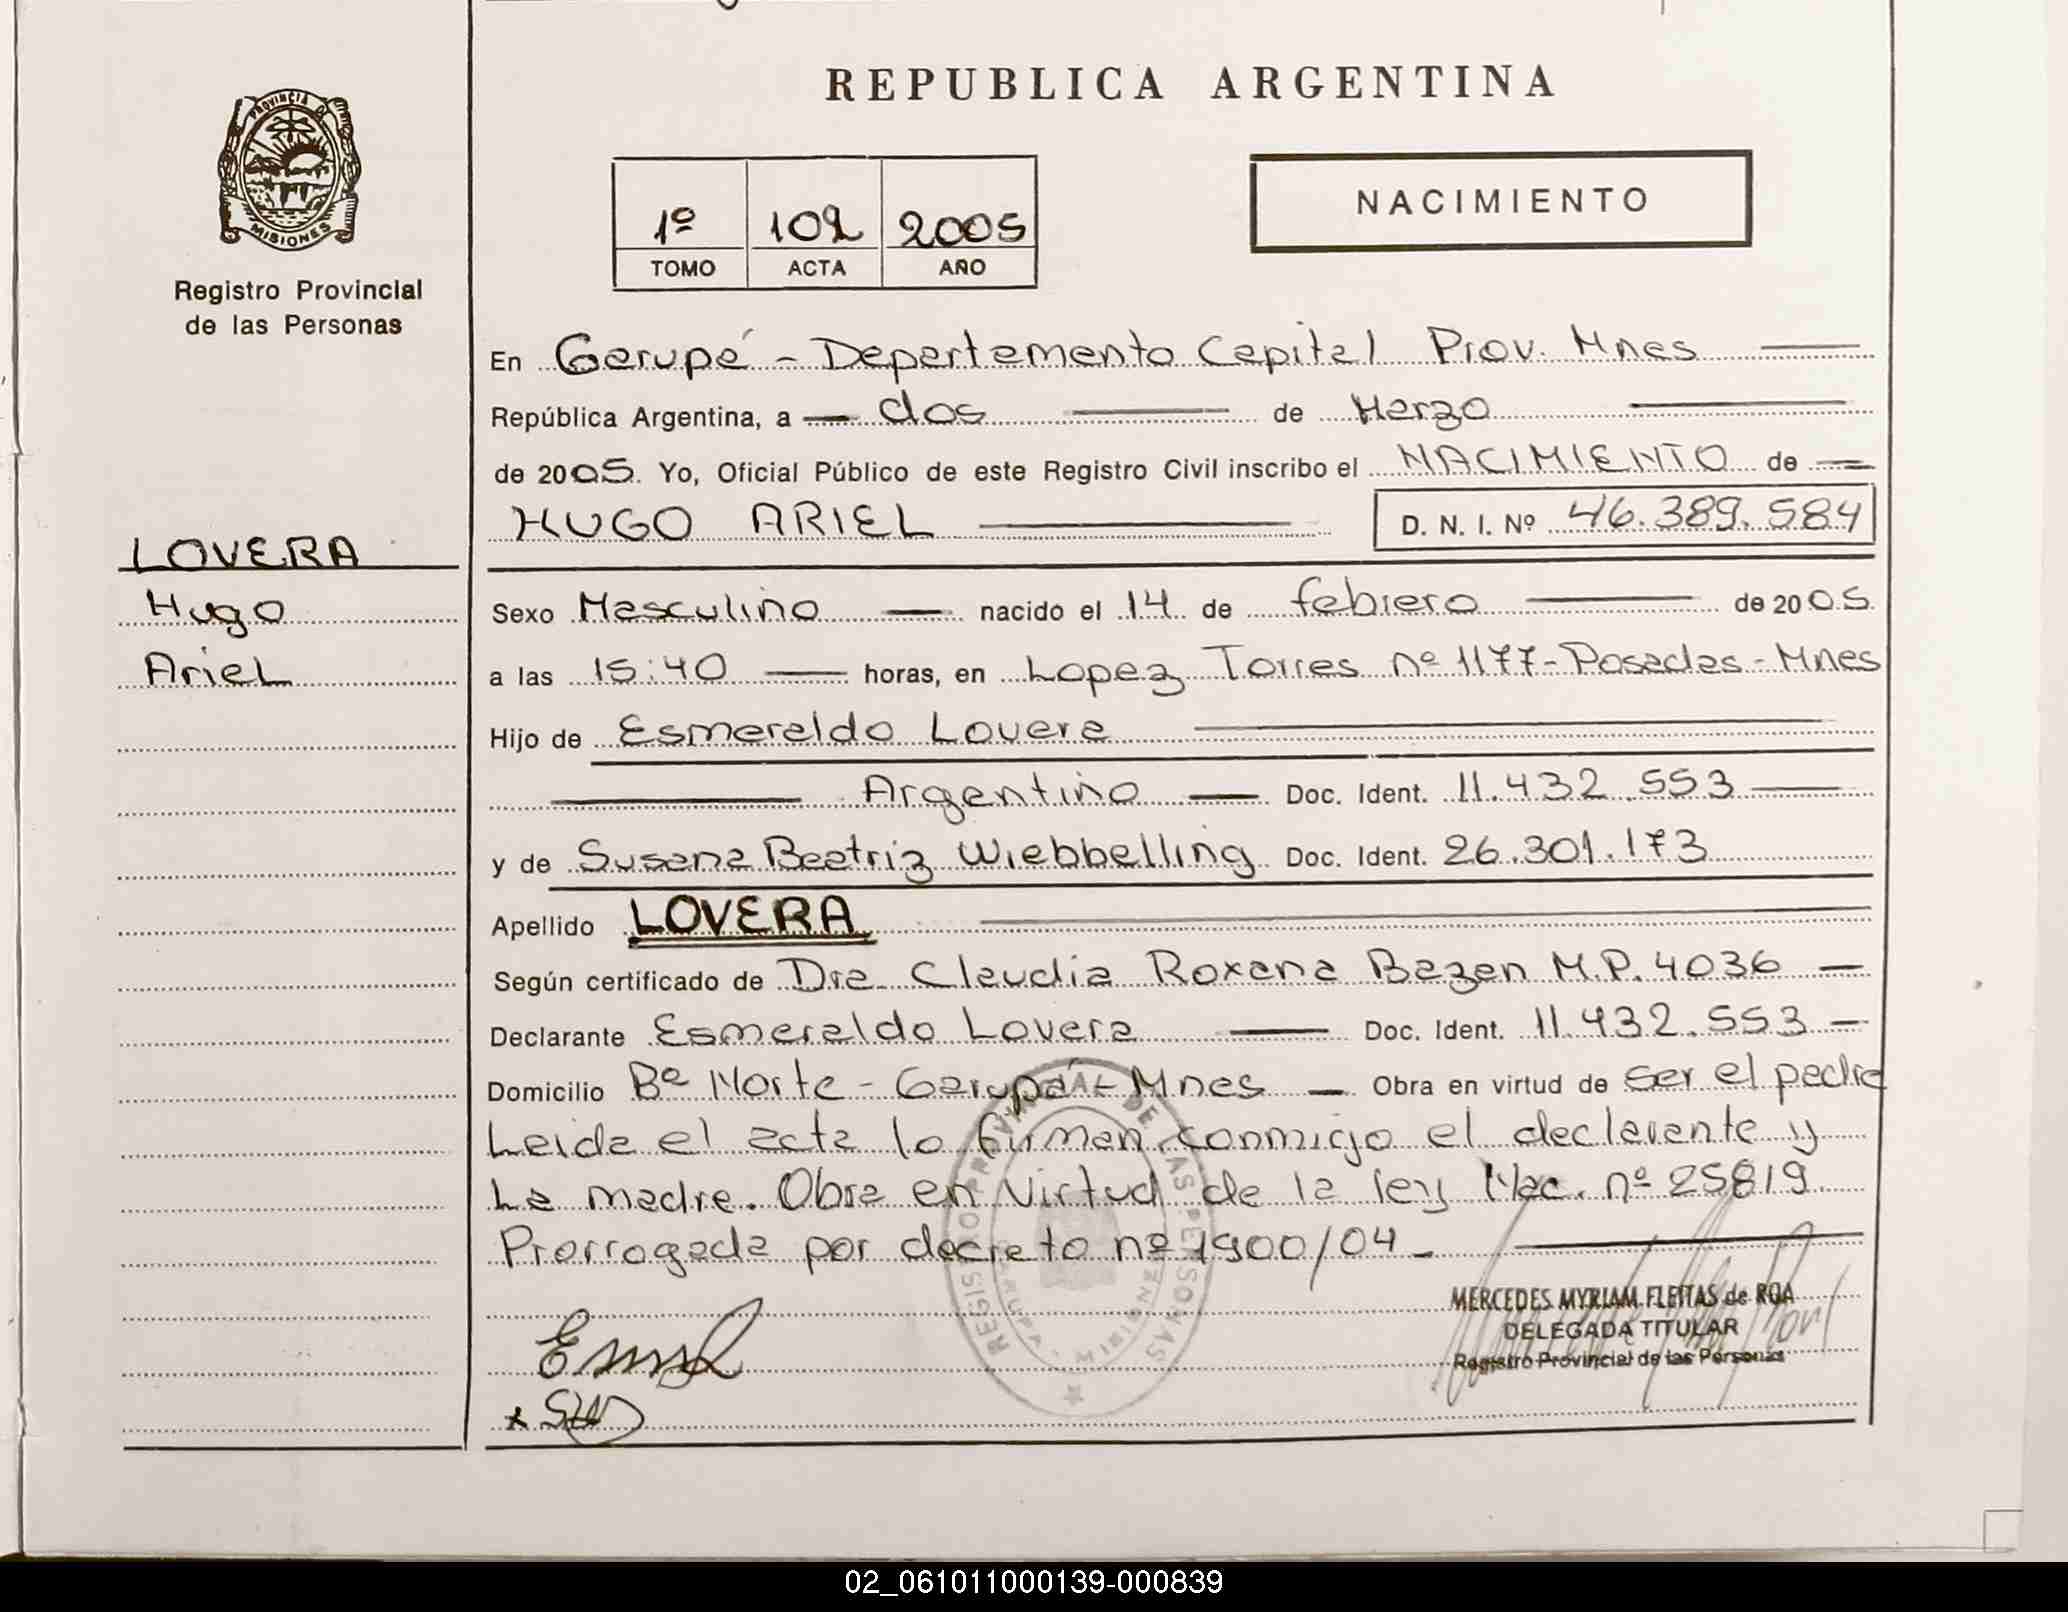 REPUBLICA ARGENTINA
PROVINCIA DE MISIONES
Registro Provincial
de las Personas
1º 102 2005
TOMO ACTA AÑO
NACIMIENTO
En Garupá - Departamento Capital Prov. Mnes
República Argentina, a dos de Marzo
de 2005. Yo, Oficial Público de este Registro Civil inscribo el NACIMIENTO de
HUGO ARIEL D. N. I. Nº 46.389.584
LOVERA
Hugo
Ariel
Sexo Masculino nacido el 14 de febrero de 2005.
a las 15:40 horas, en Lopez Torres nº 1177 - Posadas - Mnes
Hijo de Esmeraldo Lovera
Argentino Doc. Ident. 11.432.553
y de Susana Beatriz Wiebbelling Doc. Ident. 26.301.173
Apellido LOVERA
Según certificado de Dra. Claudia Roxana Bazen M.P. 4036
Declarante Esmeraldo Lovera Doc. Ident. 11.432.553
Domicilio Bº Norte - Garupá - Mnes Obra en virtud de ser el padre
Leida el acta lo firman conmigo el declarante y
La madre. Obra en virtud de la ley Nac. nº 25819.
Prorrogada por decreto nº 1900/04.
REGISTRO PROVINCIAL DE LAS PERSONAS
GARUPA - MISIONES
MERCEDES MYRIAM FLEITAS de ROA
DELEGADA TITULAR
Registro Provincial de las Personas
02_061011000139-000839